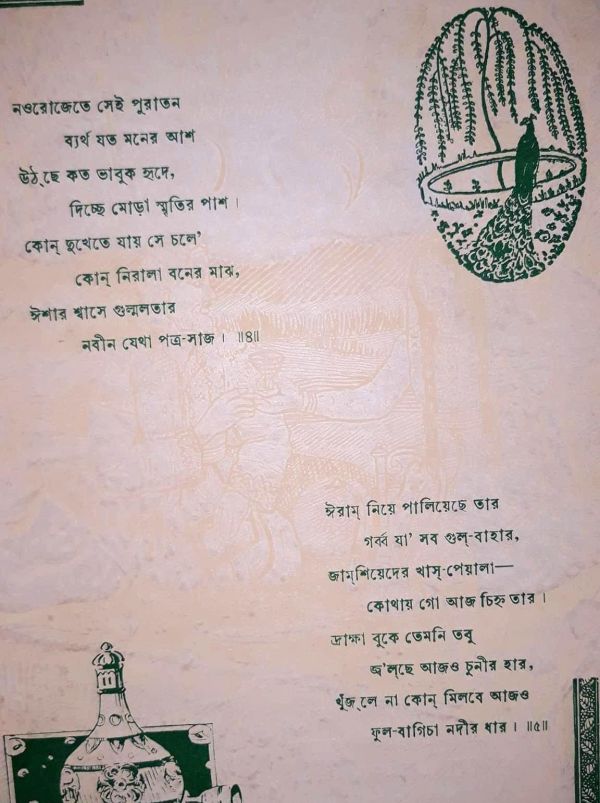 নওরোজেতে সেই পুরাতন
ব্যর্থ যত মনের আশ
উঠ্ছে কত ভাবুক হৃদে,
দিচ্ছে মোড়া স্মৃতির পাশ।
কোন্ দুখেতে যায় সে চলে'
কোন্ নিরালা বনের মাঝ,
ঈশার শ্বাসে গুল্মলতার
নবীন যেথা পত্র-সাজ। ॥৪॥
ঈরাম্ নিয়ে পালিয়েছে তার
গর্ব্ব যা' সব গুল্-বাহার,
জাম্‌শিয়েদের খাস্-পেয়ালা—
কোথায় গো আজ চিহ্ন তার।
দ্রাক্ষা বুকে তেমনি তবু
জ'লছে আজও চুনীর হার,
খুঁজ্‌লে না কোন্ মিলবে আজও
ফুল-বাগিচা নদীর ধার। ॥৫॥